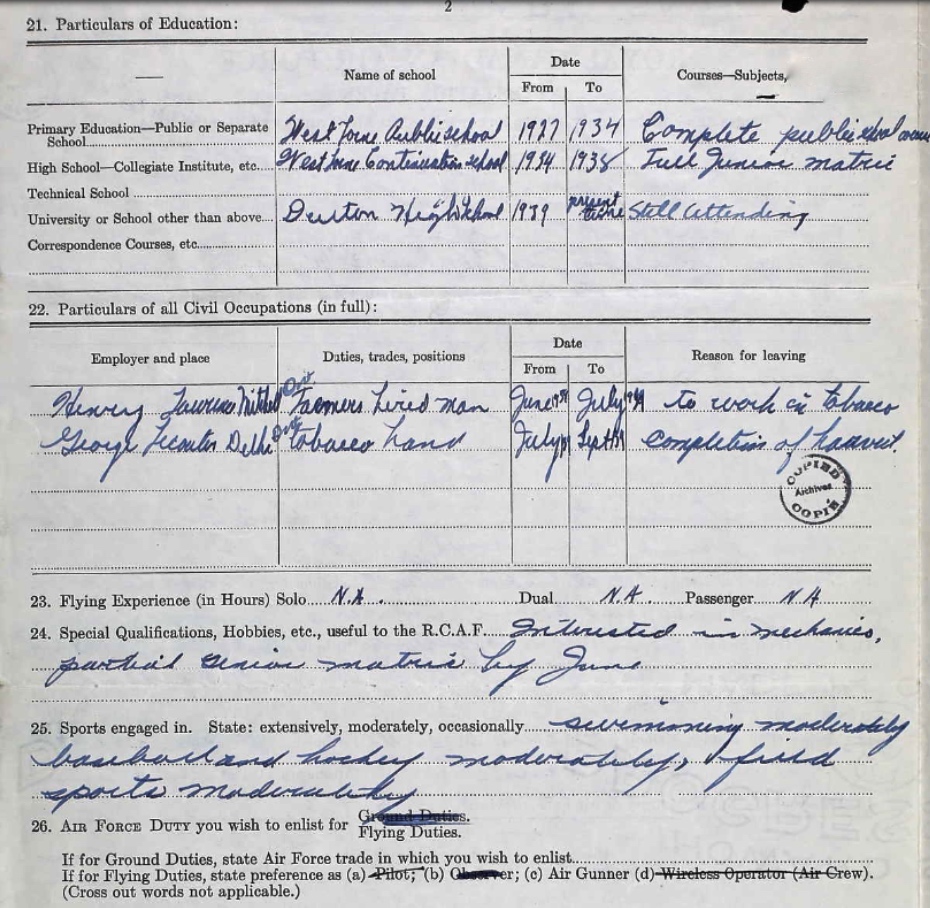 2
21. Particulars of Education:
Name of school
Date
From To
Courses—Subjects,
Primary Education—Public or Separate School West Lorne Public school 1927 1934 Complete public school course
High School—Collegiate Institute, etc. West Lorne Continuation school 1934 1938 Full Junior matric
Technical School
University or School other than above Dutton High School 1939 present time Still attending
Correspondence Courses, etc.
22. Particulars of all Civil Occupations (in full):
Employer and place
Duties, trades, positions
Date
From To
Reason for leaving
Henry Ont. Farmers hired man June July to work in tobacco
George Delhi Ont tobacco hand July Sept completion of harvest.
COPIED
Archives
COPIÉ
23. Flying Experience (in Hours) Solo N.A. Dual N.A. Passenger N A
24. Special Qualifications, Hobbies, etc., useful to the R.C.A.F. Interested in mechanics,
partial senior matric by June
25. Sports engaged in. State: extensively, moderately, occasionally swimming moderately
baseball and hockey moderately, field
sports moderately
26. AIR FORCE DUTY you wish to enlist for Ground Duties.
Flying Duties.
If for Ground Duties, state Air Force trade in which you wish to enlist
If for Flying Duties, state preference as (a) Pilot; (b) Observer; (c) Air Gunner (d) Wireless Operator (Air Crew).
(Cross out words not applicable.)